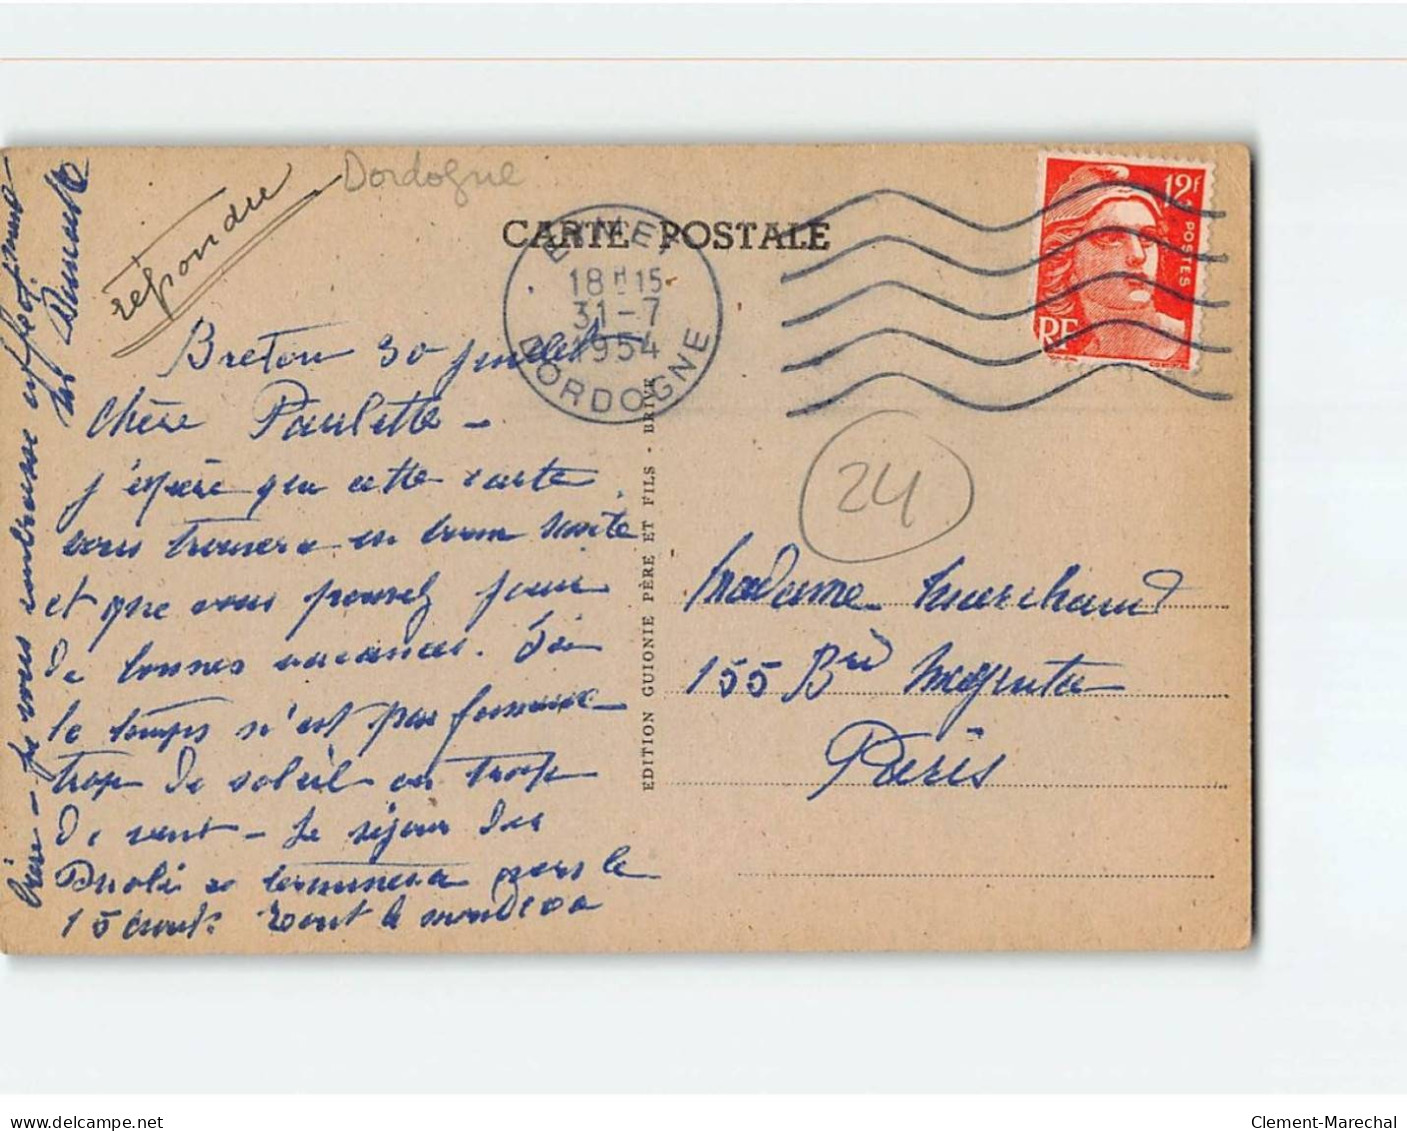 Dordogne
répondre
CARTE POSTALE
EYMET
18H15
31-7
1954
DORDOGNE
12F
POSTES
RF
Breton 30 juillet
Chère Paulette -
J'espère que cette carte
vous trouvera en bonne santé
et que vous pourrez jouir
de bonnes vacances. Ici
le temps n'est pas fameux
trop de soleil ou trop
de vent - Le séjour des
se terminera vers le
15 août. Tout le monde va
bien - je vous embrasse
EDITION GUIONIE PÈRE ET FILS - BRIVE
24
Madame Marchand
155 Bd Magenta
Paris
Clement-Marechal